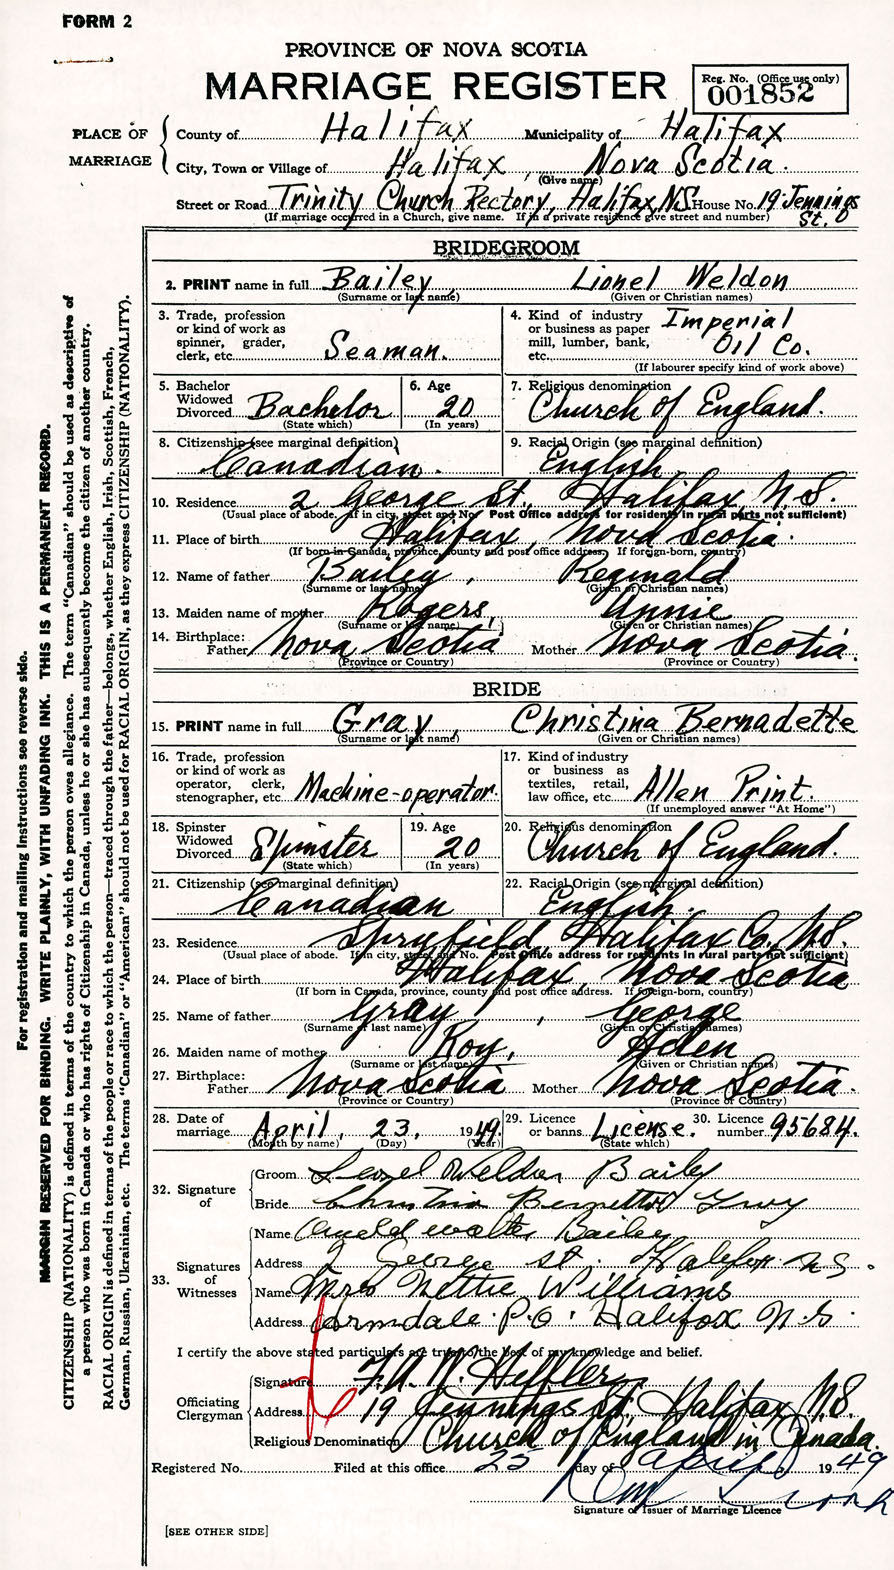 FORM 2
PROVINCE OF NOVA SCOTIA
MARRIAGE REGISTER
Reg. No. (Office use only)
001852
PLACE OF MARRIAGE
County of Halifax Municipality of Halifax
City, Town or Village of Halifax, Nova Scotia.
(Give name)
Street or Road Trinity Church Rectory, Halifax, N.S. House No. 19 Jennings St.
(If marriage occurred in a Church, give name. If in a private residence give street and number)
BRIDEGROOM
2. PRINT name in full Bailey, Lionel Weldon
(Surname or last name) (Given or Christian names)
3. Trade, profession or kind of work as spinner, grader, clerk, etc. Seaman.
4. Kind of industry or business as paper mill, lumber, bank, etc. Imperial Oil Co.
(If labourer specify kind of work above)
5. Bachelor Widowed Divorced Bachelor (State which)
6. Age 20 (In years)
7. Religious denomination Church of England.
8. Citizenship (see marginal definition) Canadian.
9. Racial Origin (see marginal definition) English.
10. Residence 2 George St., Halifax N.S.
(Usual place of abode. If in city, street and No. Post Office address for residents in rural parts not sufficient)
11. Place of birth Halifax, Nova Scotia.
(If born in Canada, province, county and post office address. If foreign-born, country)
12. Name of father Bailey, Reginald
(Surname or last name) (Given or Christian names)
13. Maiden name of mother Rogers, Annie
(Surname or last name) (Given or Christian names)
14. Birthplace: Father Nova Scotia Mother Nova Scotia.
(Province or Country) (Province or Country)
BRIDE
15. PRINT name in full Gray, Christina Bernadette
(Surname or last name) (Given or Christian names)
16. Trade, profession or kind of work as operator, clerk, stenographer, etc. Machine-operator.
17. Kind of industry or business as textiles, retail, law office, etc. Allen Print.
(If unemployed answer "At Home")
18. Spinster Widowed Divorced Spinster (State which)
19. Age 20 (In years)
20. Religious denomination Church of England.
21. Citizenship (see marginal definition) Canadian
22. Racial Origin (see marginal definition) English.
23. Residence Spryfield, Halifax Co., N.S.
(Usual place of abode. If in city, street and No. Post Office address for residents in rural parts not sufficient)
24. Place of birth Halifax, Nova Scotia
(If born in Canada, province, county and post office address. If foreign-born, country)
25. Name of father Gray, George
(Surname or last name) (Given or Christian names)
26. Maiden name of mother Roy, Aden
(Surname or last name) (Given or Christian names)
27. Birthplace: Father Nova Scotia Mother Nova Scotia.
(Province or Country) (Province or Country)
28. Date of marriage April, 23, 1949.
(Month by name) (Day) (Year)
29. Licence or banns License. (State which)
30. Licence number 95684.
32. Signature of
Groom Lionel Weldon Bailey
Bride Gray
33. Signatures of Witnesses
Name Walter Bailey
Address 2 George st. Halifax N S.
Name Mrs Nettie Williams
Address Armdale P.O. Halifax N.S.
I certify the above stated particulars are true to the best of my knowledge and belief.
Officiating Clergyman
Signature
Address 19 Jennings St., Halifax N.S.
Religious Denomination Church of England in Canada.
Registered No. Filed at this office 25 day of April 1949
Signature of Issuer of Marriage Licence
[SEE OTHER SIDE]
For registration and mailing instructions see reverse side.
MARGIN RESERVED FOR BINDING. WRITE PLAINLY, WITH UNFADING INK. THIS IS A PERMANENT RECORD.
CITIZENSHIP (NATIONALITY) is defined in terms of the country to which the person owes allegiance. The term "Canadian" should be used as descriptive of
a person who was born in Canada or who has rights of Citizenship in Canada, unless he or she has subsequently become the citizen of another country.
RACIAL ORIGIN is defined in terms of the people or race to which the person—traced through the father—belongs, whether English, Irish, Scottish, French,
German, Russian, Ukrainian, etc. The terms "Canadian" or "American" should not be used for RACIAL ORIGIN, as they express CITIZENSHIP (NATIONALITY).